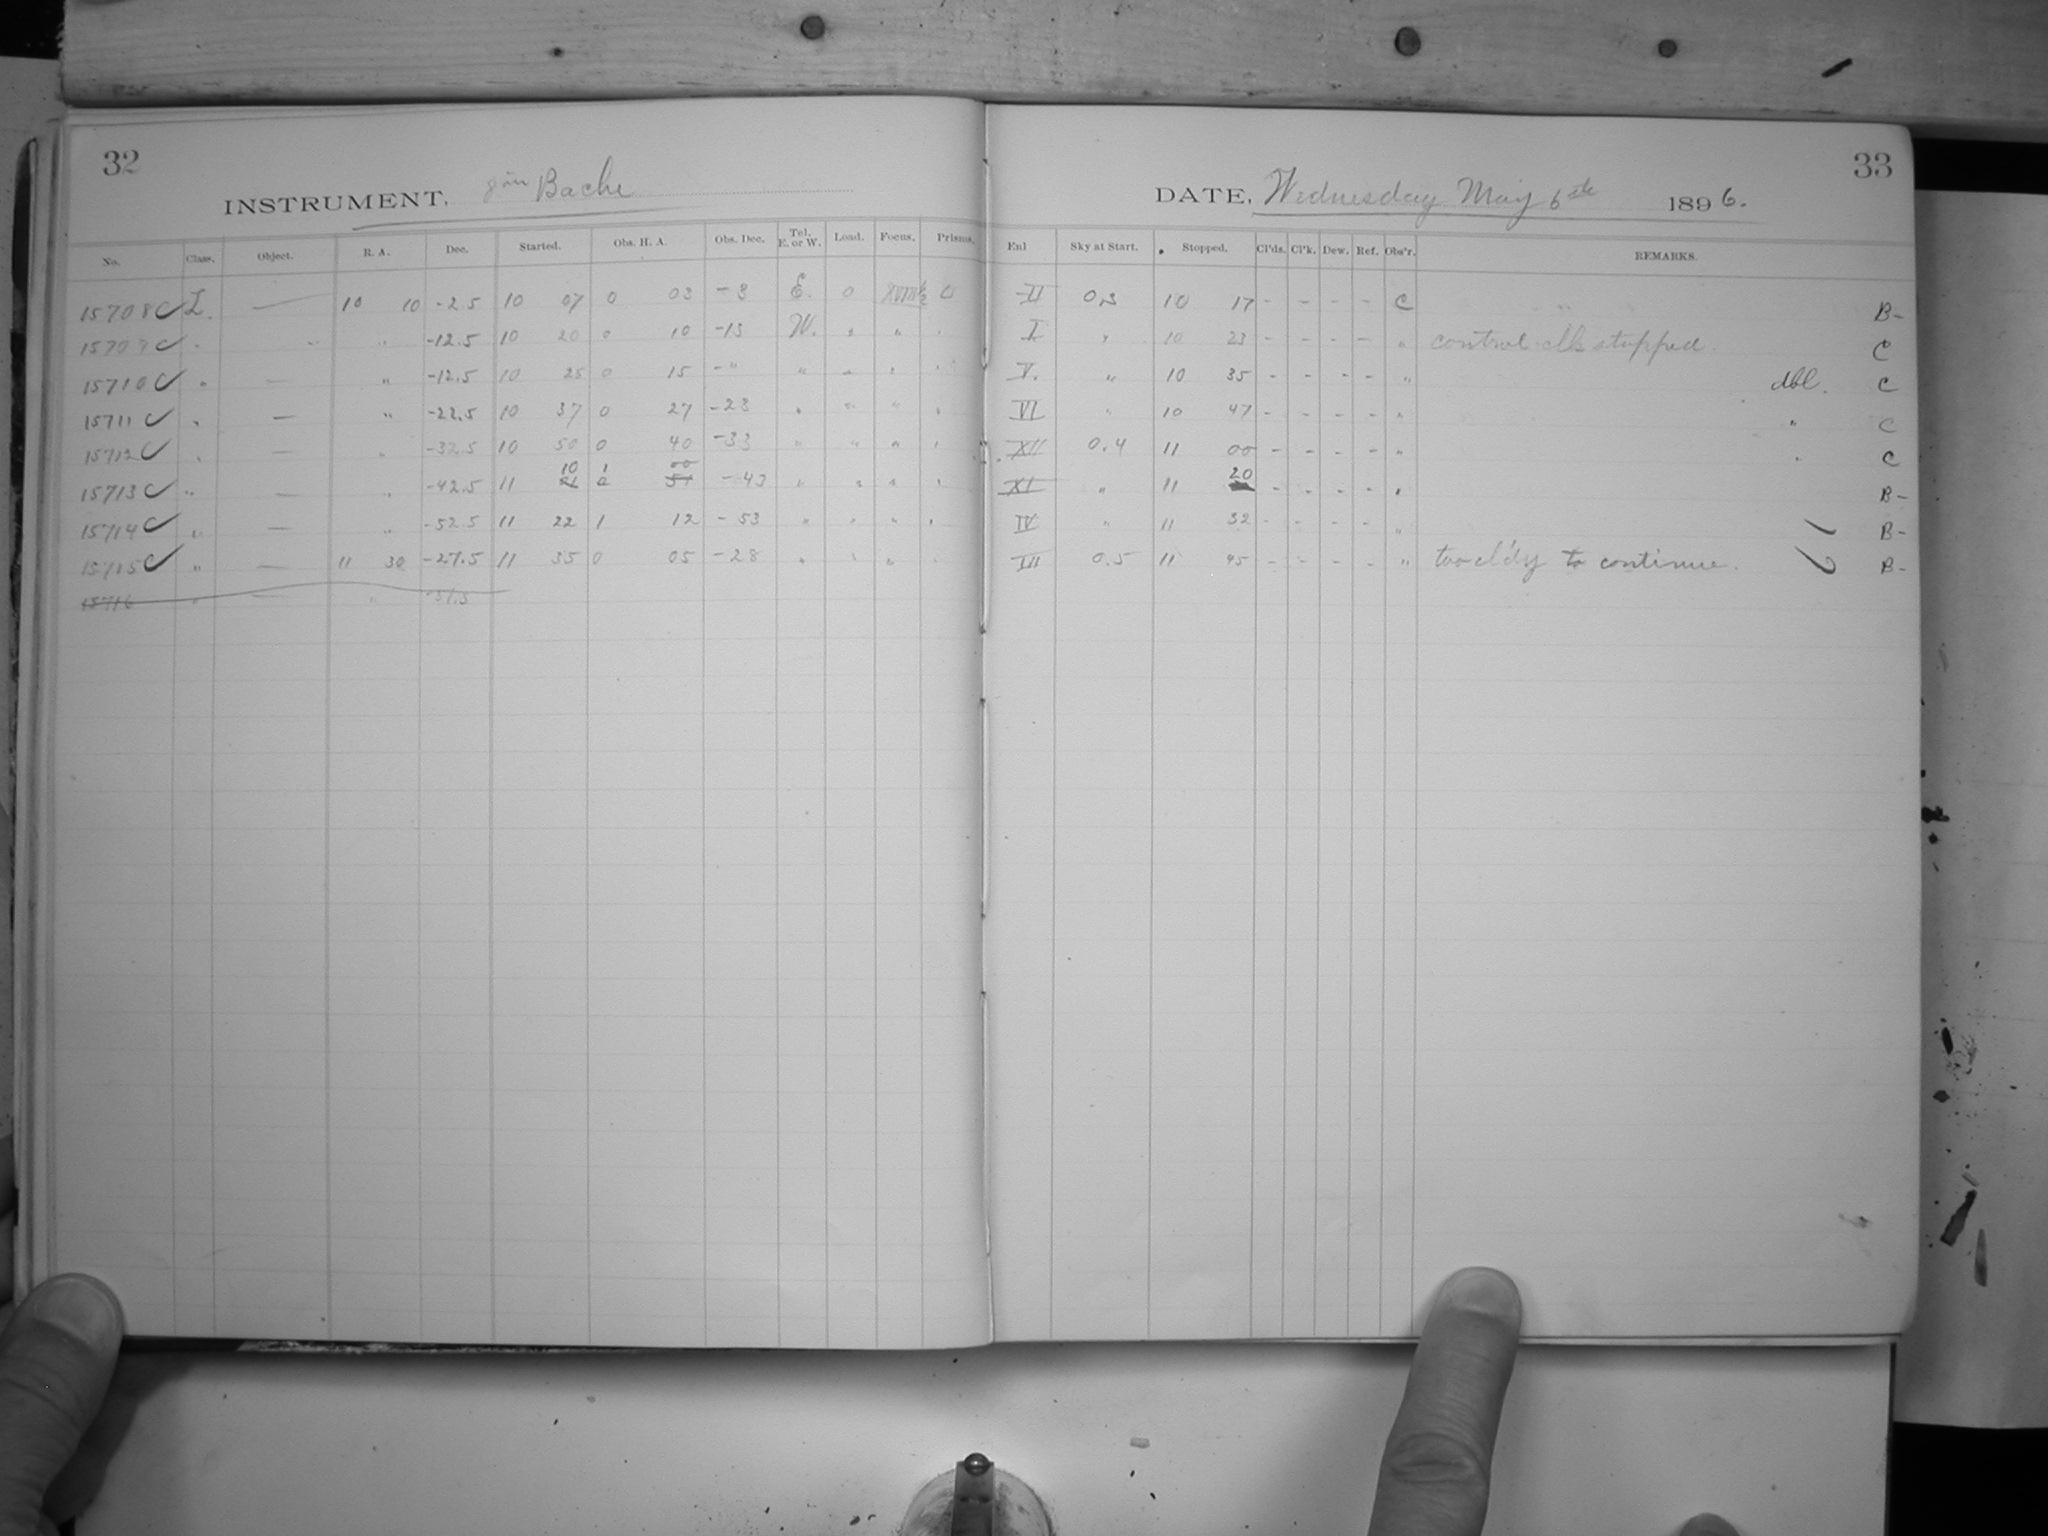 32
33
INSTRUMENT, 8 in Bache
DATE, Wednesday May 6th 1896.
No. Class. Object. R. A. Dec. Started. Obs. H. A. Obs. Dec. Tel. E. or W. Load. Focus. Prisms. Enl Sky at Start. Stopped. Cl'ds. Cl'k. Dew. Ref. Obs'r. REMARKS.
15708 C L. — 10 10 -2.5 10 07 0 03 -3 E. 0 XVIII½ 0 II 0.3 10 17 - - - - C B-
15709 C " " " -12.5 10 20 0 10 -13 W. " " " I " 10 23 - - - - " control clk stopped. C
15710 C " — " -12.5 10 25 0 15 -" " " " " V. " 10 35 - - - - " dbl. C
15711 C " — " -22.5 10 37 0 27 -23 " " " " VI " 10 47 - - - - " " C
15712 C " — " -32.5 10 50 0 40 -33 " " " " XII 0.4 11 00 - - - - " " C
15713 C " — " -42.5 11 10 1 00 -43 " " " " XI " 11 20 - - - - " B-
15714 C " — " -52.5 11 22 1 12 -53 " " " " IV " 11 32 - - - - " B-
15715 C " — 11 30 -27.5 11 35 0 05 -28 " " " " III 0.5 11 45 - - - - " too cl'dy to continue. B-
15716 " — "